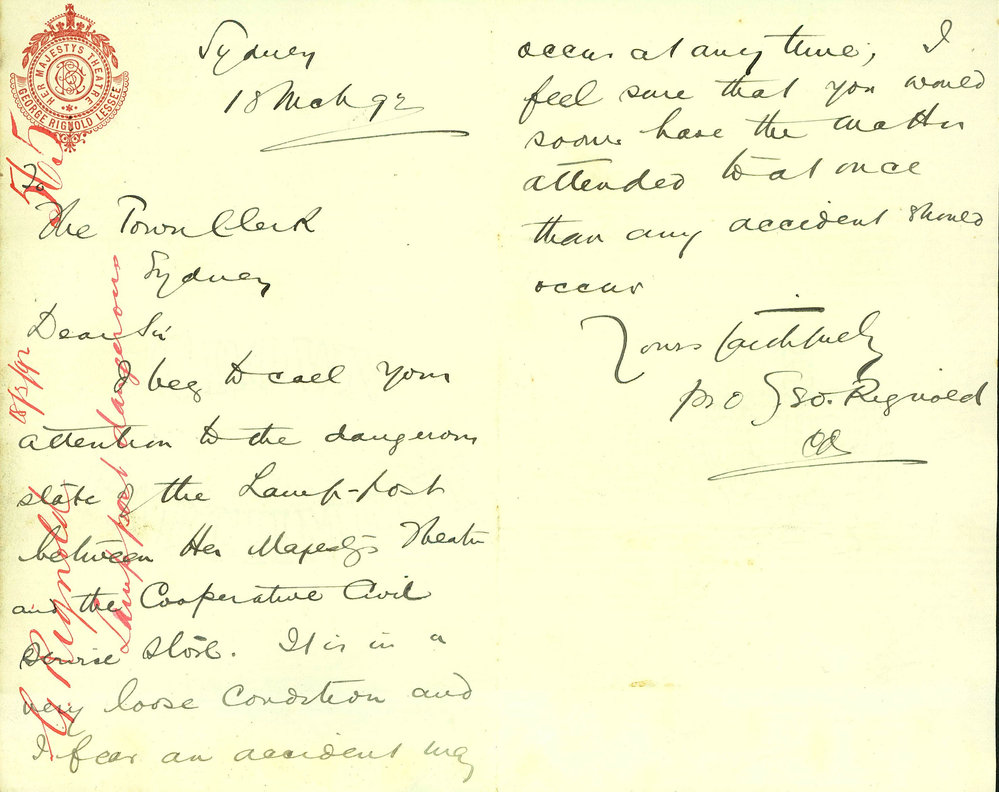 HER MAJESTYS THEATRE
GEORGE RIGNOLD LESSEE
Sydney
18 Mch 92
To
The Town Clerk
Sydney
Dear Sir
I beg to call your
attention to the dangerous
state of the Lamp-post
between Her Majesty's Theatre
and the Cooperative Civil
Service Store. It is in a
very loose condition and
I fear an accident may
occur at any time, I
feel sure that you would
sooner have the matter
attended to at once
than any accident should
occur
Yours faithfully
pro Geo. Rignold
G Rignold 18/3/92
Lamp post dangerous